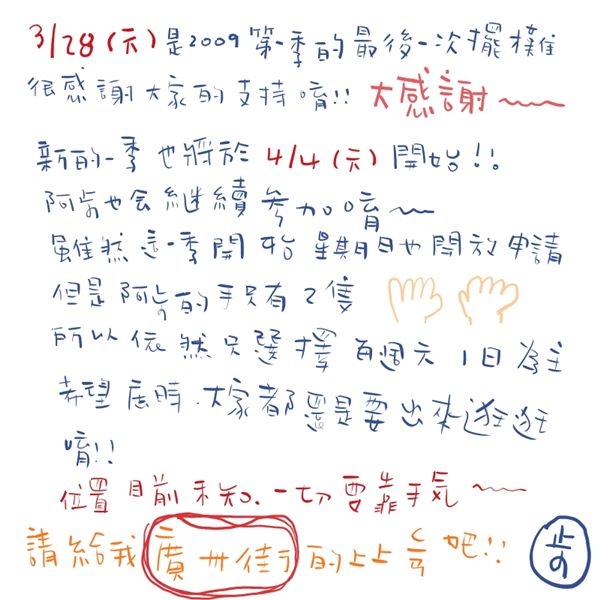 3/28(六)是2009第一季的最後一次擺攤
很感謝大家的支持唷!! 大感謝~~~
新的一季也將於 4/4(六) 開始!!
阿崀也会継續参加唷~~
雖然這一季開始 星期日也開放申請
但是阿的手只有2隻
所以依然只選擇每週六1日為主
希望屆時、大家都還是要出來逛逛
唷!!
位置目前未知、一切要靠手気~~~
請給我廣州街的上上吧!!